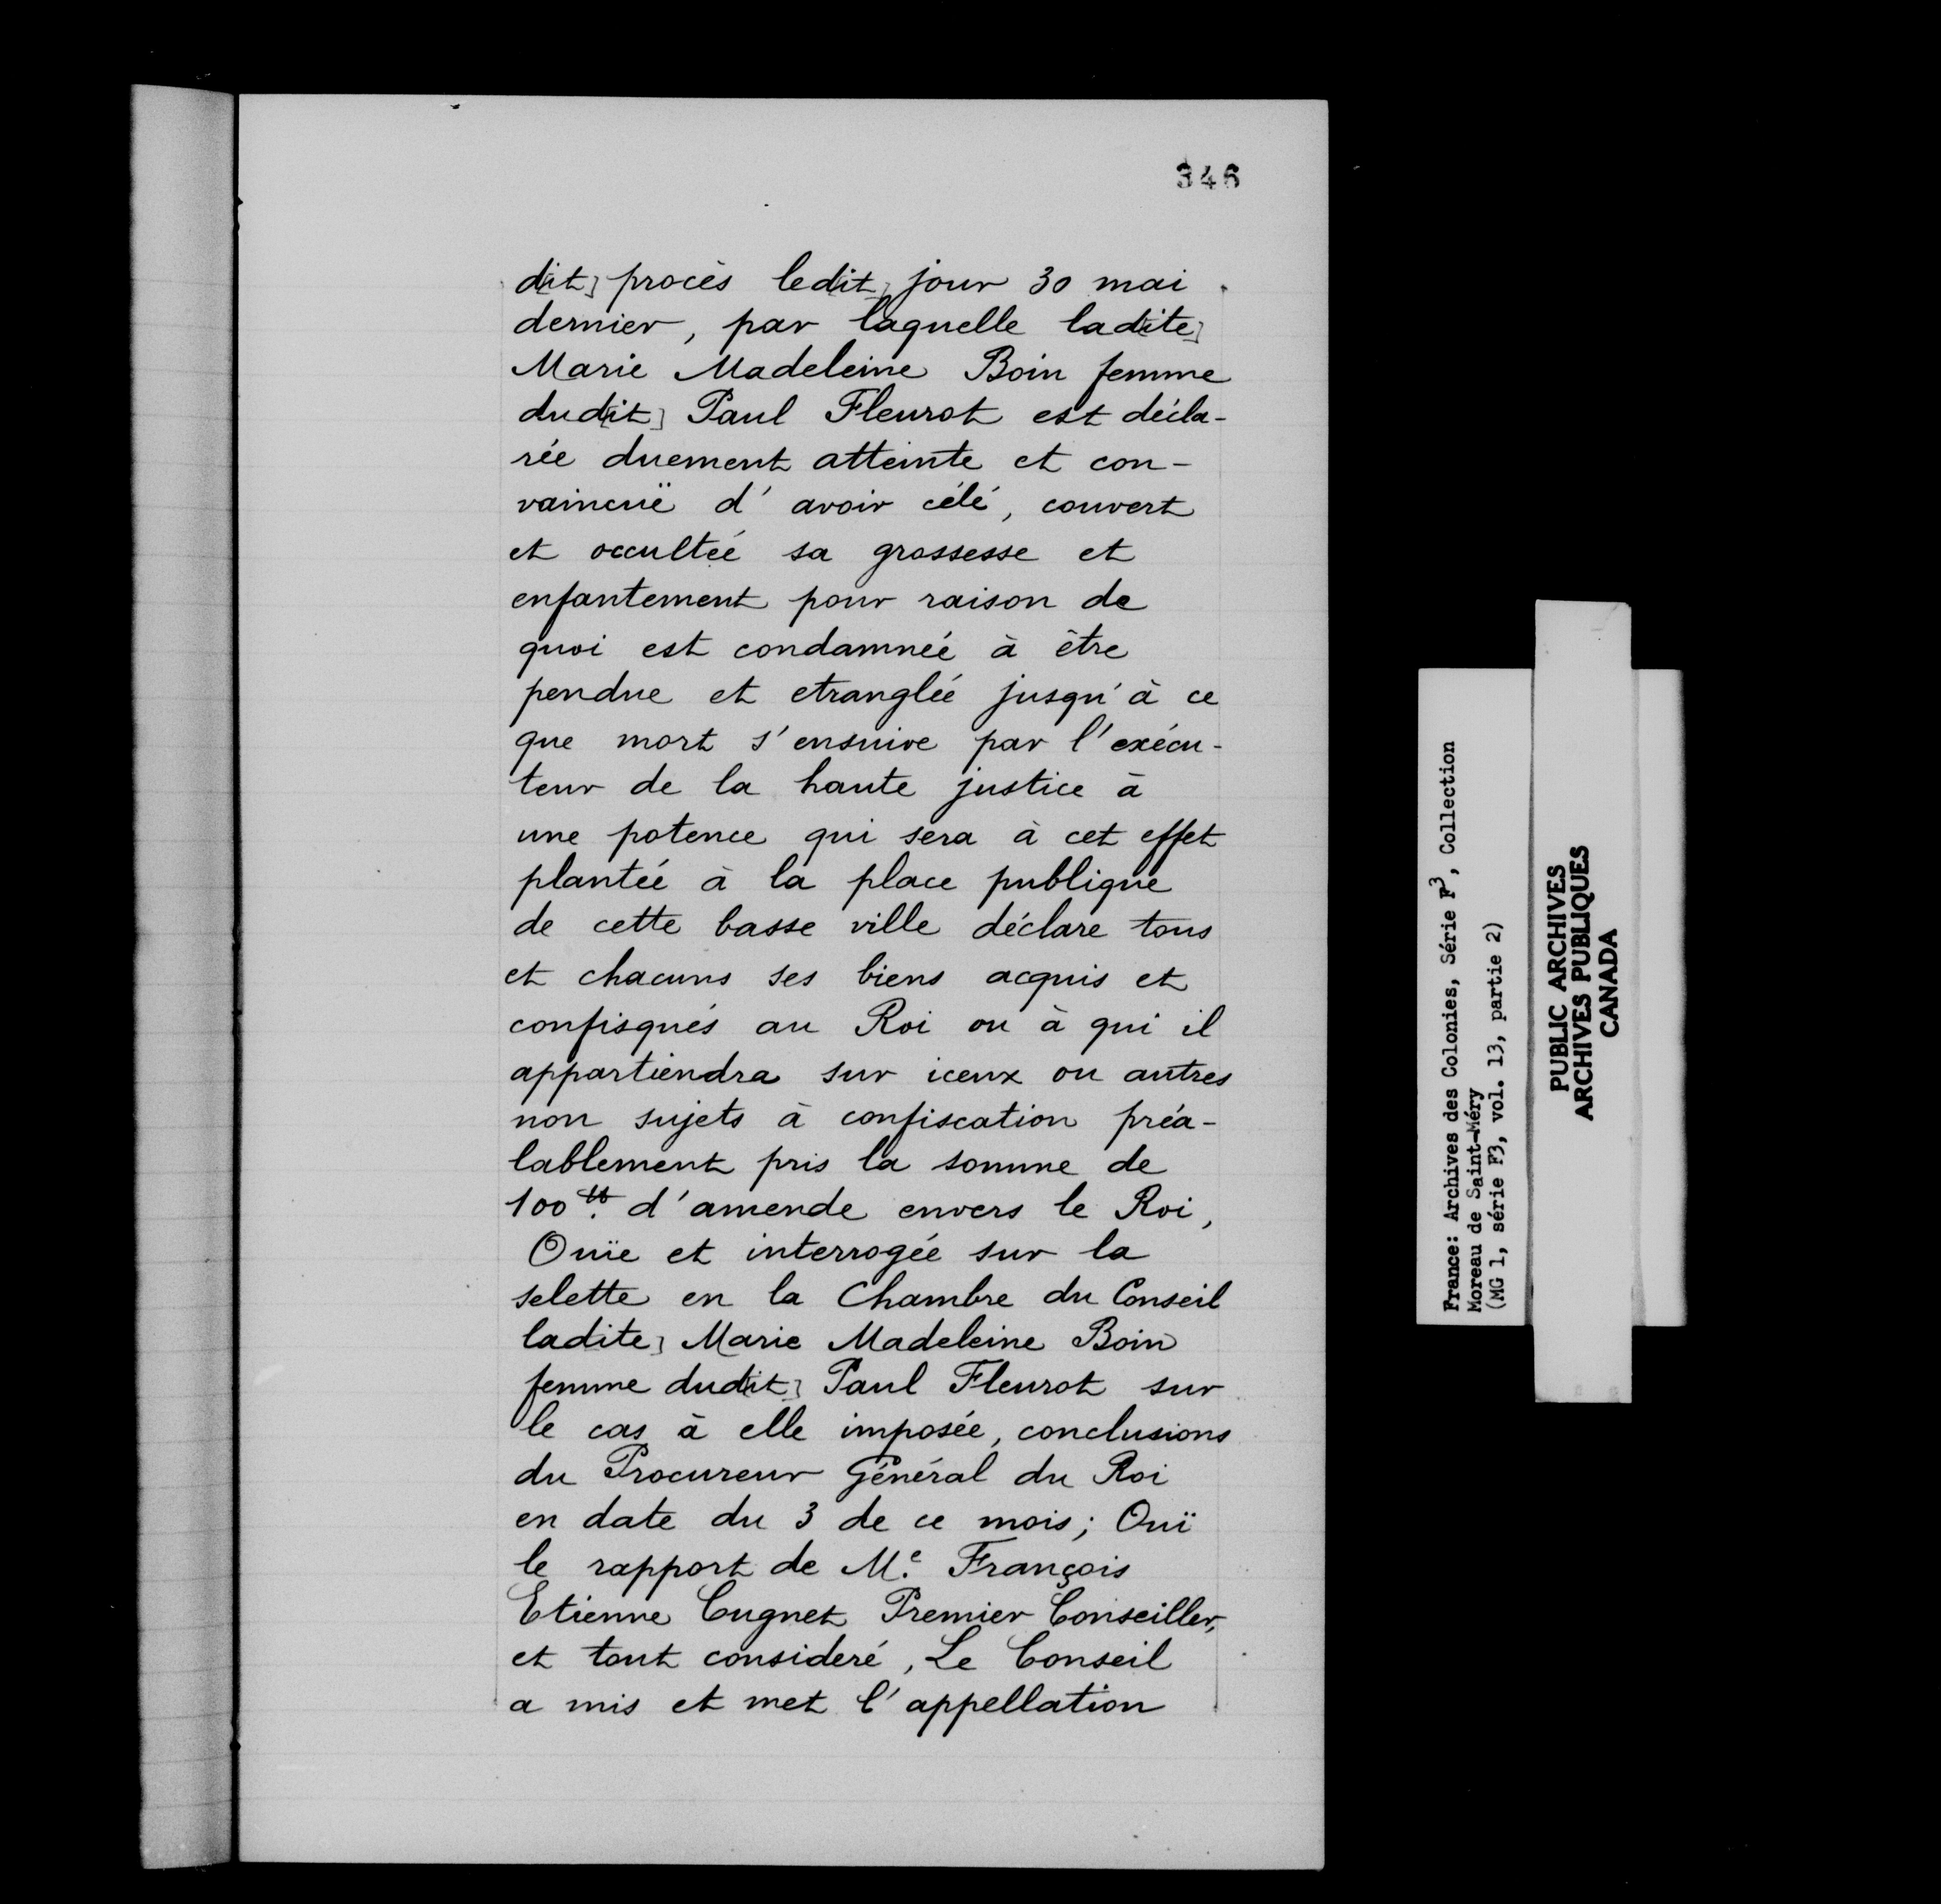 346
d[it] procès led[it] jour 30 mai
dernier, par laquelle lad[ite]
Marie Madeleine Boin femme
dud[it] Paul Fleurot est décla-
rée duement atteinte et con-
vaincuë d'avoir célé, couvert
et occultée sa grossesse et
enfantement pour raison de
quoi est condamnée à être
pendue et etranglée jusqu'à ce
que mort s'ensuive par l'exécu-
teur de la haute justice à
une potence qui sera à cet effet
plantée à la place publique
de cette basse ville déclare tous
et chacuns ses biens acquis et
confisqués au Roi ou à qui il
appartiendra sur iceux ou autres
non sujets à confiscation préa-
lablement pris la somme de
100 ₶. d'amende envers le Roi,
Ouïe et interrogée sur la
selette en la Chambre du Conseil
lad[ite] Marie Madeleine Boin
femme dud[it] Paul Fleurot sur
le cas à elle imposée, conclusions
du Procureur Général du Roi
en date du 3 de ce mois; Ouï
le rapport de M.e François
Etienne Cugnet Premier Conseiller,
et tout consideré, Le Conseil
a mis et met l'appellation
France: Archives des Colonies, Série F3, Collection
Moreau de Saint-Méry
(MG 1, série F3, vol. 13, partie 2)
PUBLIC ARCHIVES
ARCHIVES PUBLIQUES
CANADA